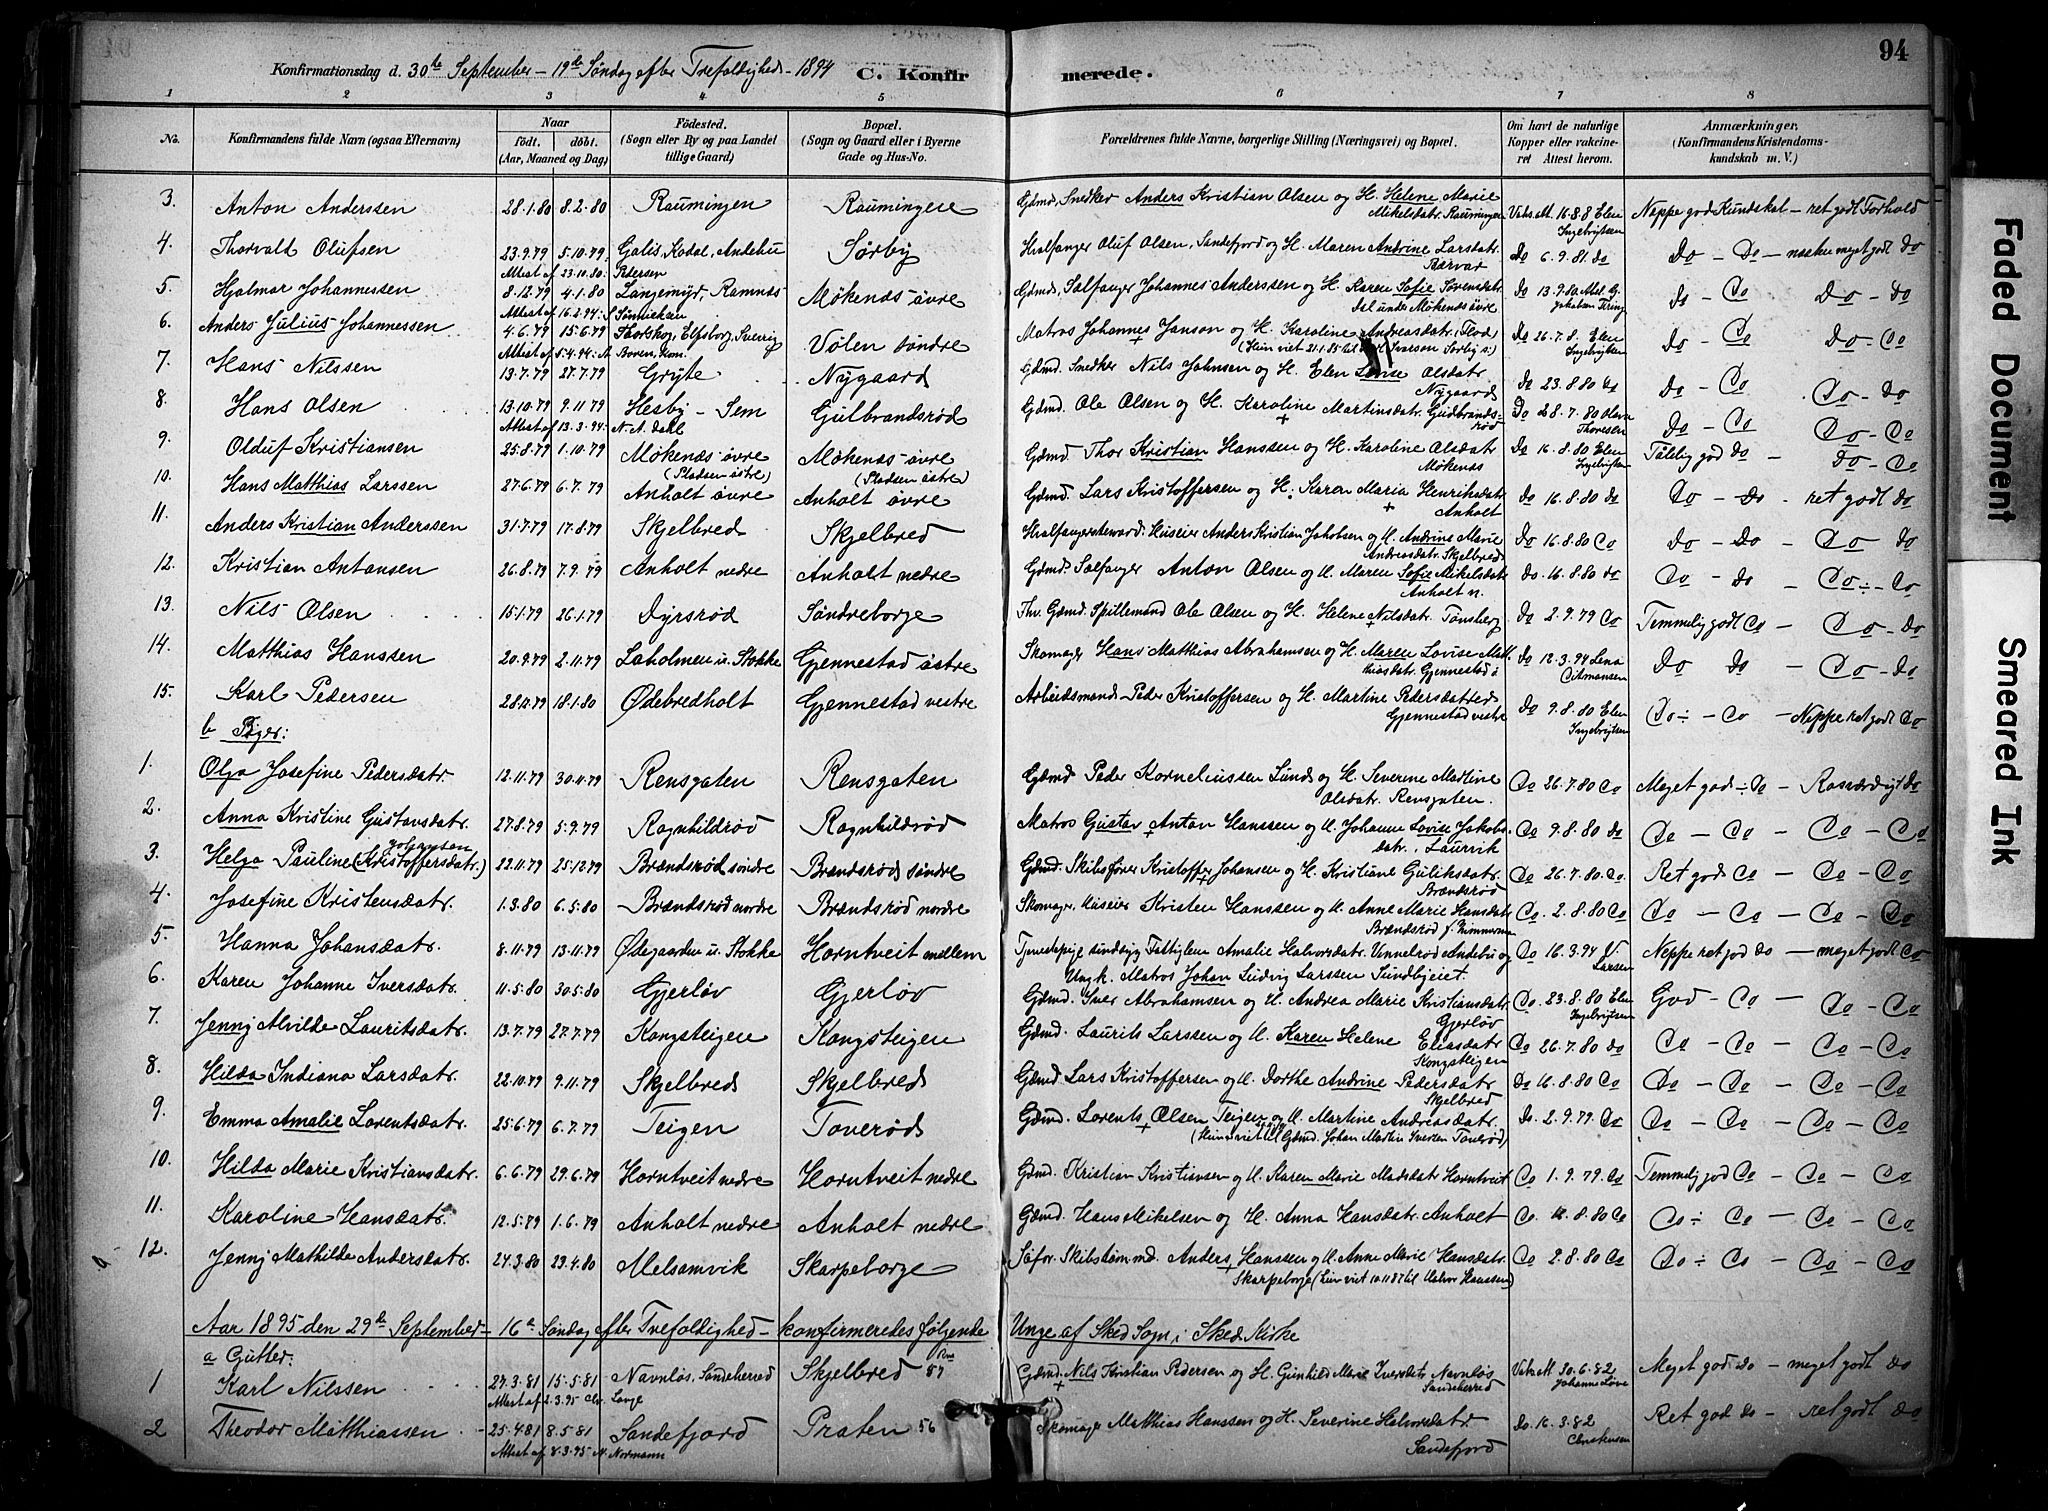 94
Konfirmationsdag d. 30te September - 19de Søndag efter Trefoldighed - 1894 C. Konfirmerede.
1 2 3 4 5 6 7 8
No. Konfirmandens fulde Navn (ogsaa Efternavn) Naar født. døbt. (Aar, Maaned og Dag) Fødested. (Sogn eller By og paa Landet tillige Gaard) Bopæl. (Sogn og Gaard eller i Byerne Gade og Hus-No. Forældrenes fulde Navne, borgerlige Stilling (Næringsvei) og Bopæl. Om havt de naturlige Kopper eller vaccineret Attest herom. Anmærkninger. (Konfirmandens Kristendomskundskab m. V.)
3. Anton Anderssen 28.1.80 8.2.80 Raumingen Raumingen Gdmd. Snedker Anders Kristian Olsen og H. Helene Marie Mikelsdatr. Raumingen 16.8.8 Elen Ingebrigtsen Neppe god Kundskab - ret godt Forhold
4. Thorvald Olufsen 23.9.79 5.10.79 Kodal, Andebu Sørby Hvalfanger Oluf Olsen, Sandefjord og H. Maren Andrine Larsdatr. Do 6.9.81. do Do - Do - næsten meget godt do
Attest af 23.10.80: Pedersen
5. Hjalmar Johannessen 8.12.79 4.1.80 Langemyr, Ramnæs Møkenæs øvre Gdmd. Sælfanger Johannes Anderssen og H. Karen Sofie Sørensdatr. dal under Møkenæs øvre Do 13.9.80 do - Do Do - do
Attest af 16.2.94:
6. Anders Julius Johannessen 4.6.79 15.6.79 Elfsborg, Sverrig Vølen søndre Matros Johannes Janson og H. Karoline Andreasdatr. Do 26.7.8. Elen Ingebrigtsen do - Do Do - Do
Attest af 5.4.94:
7. Hans Nilssen 13.7.79 27.7.79 Gryte Nygaard Gdmd. Snedker Nils Johnsen og H. Elen Lovise Olsdatr. Nygaard Do 23.8.80 do do - Do Do - do
8. Hans Olsen 13.10.79 9.11.79 Hesby - Sem Gulbrandsrød Gdmd. Ole Olsen og H. Karoline Martinsdatr. Gudbrandsrød Do 28.7.80 Olava Thoresen Do - Do Do - Do
Attest af 13.3.94: N. A. Dahl
9. Oluf Kristiansen 25.8.79 1.10.79 Møkenæs øvre (Pladsen østre) Møkenæs øvre (Pladsen østre) Gdmd. Thor Kristian Hanssen og H. Karoline Olsdatr Møkenæs Do 16.8.80 Elen Ingebrigtsen Tålelig god do - Do - Do
10. Hans Matthias Larssen 27.6.79 6.7.79 Anholt øvre Anholt øvre Gdmd. Lars Kristoffersen og H. Karen Maria Henriksdatr Anholt do 16.8.80 do Do - do - ret godt do
11. Anders Kristian Anderssen 31.7.79 17.8.79 Skjelbred Skjelbred Huseier Anders Kristian Jakobsen og H. Andrine Marie Andreasdatr. Skjelbred Do 16.8.80 Do do - do - Do do
12. Kristian Antonsen 26.8.79 7.9.79 Anholt nedre Anholt nedre Gdmd. Sælfanger Anton Olsen og H. Maren Sofie Mikelsdatr Anholt n. Do. 16.8.80 do Do - do - Do - Do
13. Nils Olsen 15.1.79 26.1.79 Dyrsrød Søndreborge Fhv. Gdmd. Spillemand Ole Olsen og H. Helene Nilsdatr. Tønsberg Do 2.9.79 Do Temmelig godt Do - Do - do
14. Matthias Hanssen 20.9.79 2.11.79 Laholmen u. Stokke Gjennestad østre Skomager Hans Matthias Abrahamsen og H. Maren Lovise Matthiasdatr. Gjennestad ø Do 12.3.94 Lena Do do - Do - do
15. Karl Pedersen 28.11.79 18.1.80 Ødebredholt Gjennestad vestre Arbeidsmand Peder Kristoffersen og H. Martine Pedersdatter Gjennestad vestre Do 9.8.80 Elen Ingebrigtsen Do - Do - Neppe ret godt Do
b Piger:
1. Olga Josefine Pedersdatr. 12.11.79 30.11.79 Rensgaten Rensgaten Gdmd Peder Korneliussen Lund og H. Severine Martine Olsdatr. Rensgaten. Do 26.7.80 Do Meget god - Do - Rosværdigt do
2. Anna Kristine Gustavsdatr. 27.8.79 5.9.79 Ragnhildrød Ragnhildrød Matros Gustav Anton Hanssen og H. Johanne Lovise Jakobsdatr. Laurvik Do 9.8.80 do Do - Do - Do - Do
3. Helga Pauline (Kristoffersdatr.) Johansen 22.11.79 25.12.79 Brændsrød søndre Brændsrød søndre Gdmd. Skibsfører Kristoffer Johansen og H. Kristiane Guliksdatr. Brændsrød Do 26.7.80. Do. Ret god Do - Do - Do
4. Josefine Kristensdatr. 1.3.80 6.5.80 Brændsrød nordre Brændsrød nordre Skomager, Huseier Kristen Hanssen og H. Anne Marie Hansdatr Brændsrød Do. 2.8.80 Do Do - Do - Do - Do
5. Hanna Johansdatr. 8.11.79 13.11.79 Ødegaarden u. Stokke Horntveit mellem Tjenestepige sindssyg Fattiglem Amalie Halvorsdatr. Vennelrød Andebu og Ungk. Matros Johan Ludvig Larssen Sundbyeiet. Do 16.3.94 Larsen Neppe ret god do - meget godt Do
6. Karen Johanne Iversdatr. 11.5.80 30.5.80 Gjerløv Gjerløv Gdmd. Iver Abrahamsen og H. Andrea Marie Kristiansdatr. Gjerløv Do. 23.8.80 Elen Ingebrigtsen God - Do - Do - Do
7. Jenny Alvilde Lauritsdatr. 13.7.79 27.7.79 Kongsteigen Kongsteigen Gdmd. Laurits Larssen og H. Karen Helene Eliasdatr. Kongsteigen Do 26.7.80 do Do - Do - Do - Do
8. Hilda Indiana Larsdatr. 22.10.79 9.11.79 Skjelbred Skjelbred Gdmd. Lars Kristoffersen og H. Dorthe Andrine Pedersdatr. Skjelbred Do 16.8.80 Do Do - Do - Do - Do
9. Emma Amalie Lorentsdatr. 25.6.79 6.7.79 Teigen Toverød Gdmd. Lorents Olsen Teigen og H. Martine Andreasdatr. (Hun viet til Gdmd. Johan Martin Iversen Toverød) Do. 2.9.79 Do Do - Do - Do - Do
10. Hilda Marie Kristiansdatr. 6.6.79 29.6.79 Horntveit nedre Horntveit nedre Gdmd. Kristian Kristiansen og H. Karen Marie Madsdatr Horntveit Do 1.9.79 Do Temmelig god Do - Do - Do
11. Karoline Hansdatr. 12.5.79 1.6.79 Anholt nedre Anholt nedre Gdmd. Hans Mikelsen og H. Anna Hansdatr. Anholt Do. 8.80 Do Do - Do - Do - Do
12. Jenny Mathilde Andersdatr. 24.3.80 23.4.80 Melsomvik Skarpeborge Skibstømmd. Anders Hanssen og H. Anne Marie Hansdatr. Skarpeborge (Hun viet 10.11 87 til Halvor Hanssen) Do 2.8.80 Do Do - Do - Do - Do
Aar 1895 den 29de September - 16de Søndag efter Trefoldighed - konfirmeredes følgende Unge af Skee Sogn i Skee Kirke
a Gutter:
1 Karl Nilssen 27.3.81 15.5.81 Navnløs. Sandeherred Skjelbred 57 Gdmd. Nils Kristian Pedersen og H. Gunhild Marie Iversdatr Navnløs Sandeherred 30.6.82 Meget god do - meget godt do
Attest af 2.3.95 Chr. Lange
2 Theodor Matthiassen 25.4.81 8.5.81 Sandefjord Praten 56 Skomager Matthias Hanssen og H. Severine Halvorsdatr. Sandefjord Do. 16.3.82 Christensen Ret god do - ret godt do
Attest af 8.3.95 Normann
Faded Document
Smeared Ink